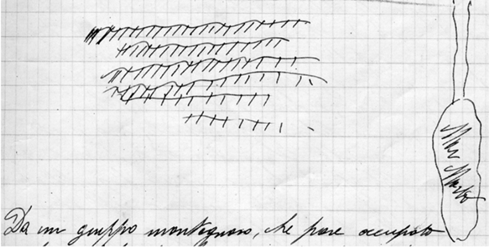 Mar Morto
Da un gruppo montagnoso, che pare occupato